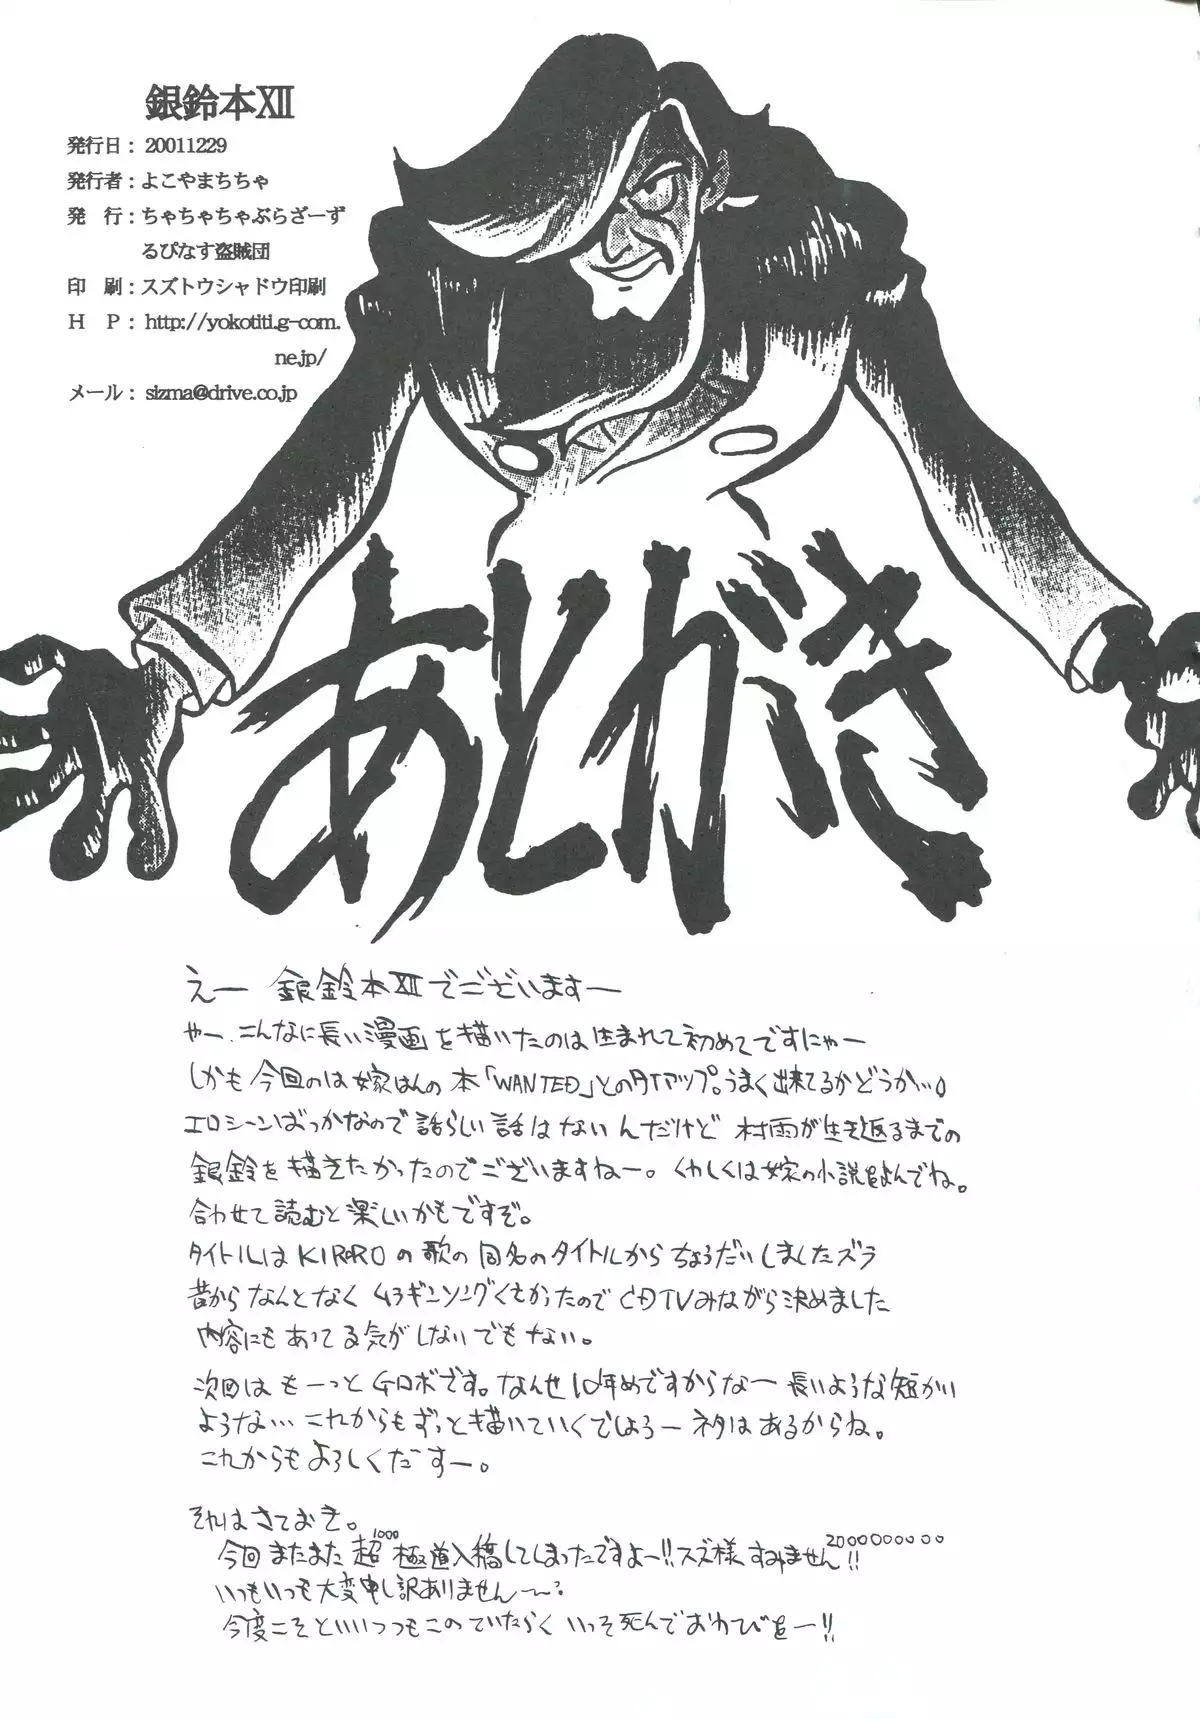 銀鈴本XII
発行日： 20011229
発行者：よこやまちちゃ
発　行：ちゃちゃちゃぶらざーず
るぴなす盗賊団
印　刷：スズトウシャドウ印刷
Ｈ　Ｐ： http://yokotiti.g-com.
ne.jp/
メール： sizma@drive.co.jp
あとがき
えー 銀鈴本XIIでございますー
やー、こんなに長い漫画を描いたのは生まれて初めてですにゃー
しかも今回のは嫁はんの本「WANTED」とのタイアップ。うまく出来てるかどうか…。
エロシーンばっかなので話らしい話はないんだけど 村雨が生き返るまでの
銀鈴を描きたかったのでございますねー。くわしくは嫁の小説をよんでね。
合わせて読むと楽しいかもですぞ。
タイトルはKIROROの歌の同名のタイトルからちょうだいしましたズラ
昔からなんとなく ソングくさかったので CDTVみながら決めました
内容にもあってる気がしないでもない。
次回は もーっとGロボです。なんせ10年めですからなー 長いような短かい
ような… これからもずっと描いていくでしょうー ネタはあるからね。
これからもよろしくだすー。
それはさておき。
今回またまた超1000極道入稿してしまったですよー!!スズ様、すみません2000000000!!
いつもいつも大変申し訳ありませんー
今度こそといいつつもこのていたらく いっそ死んでおわびをー!!